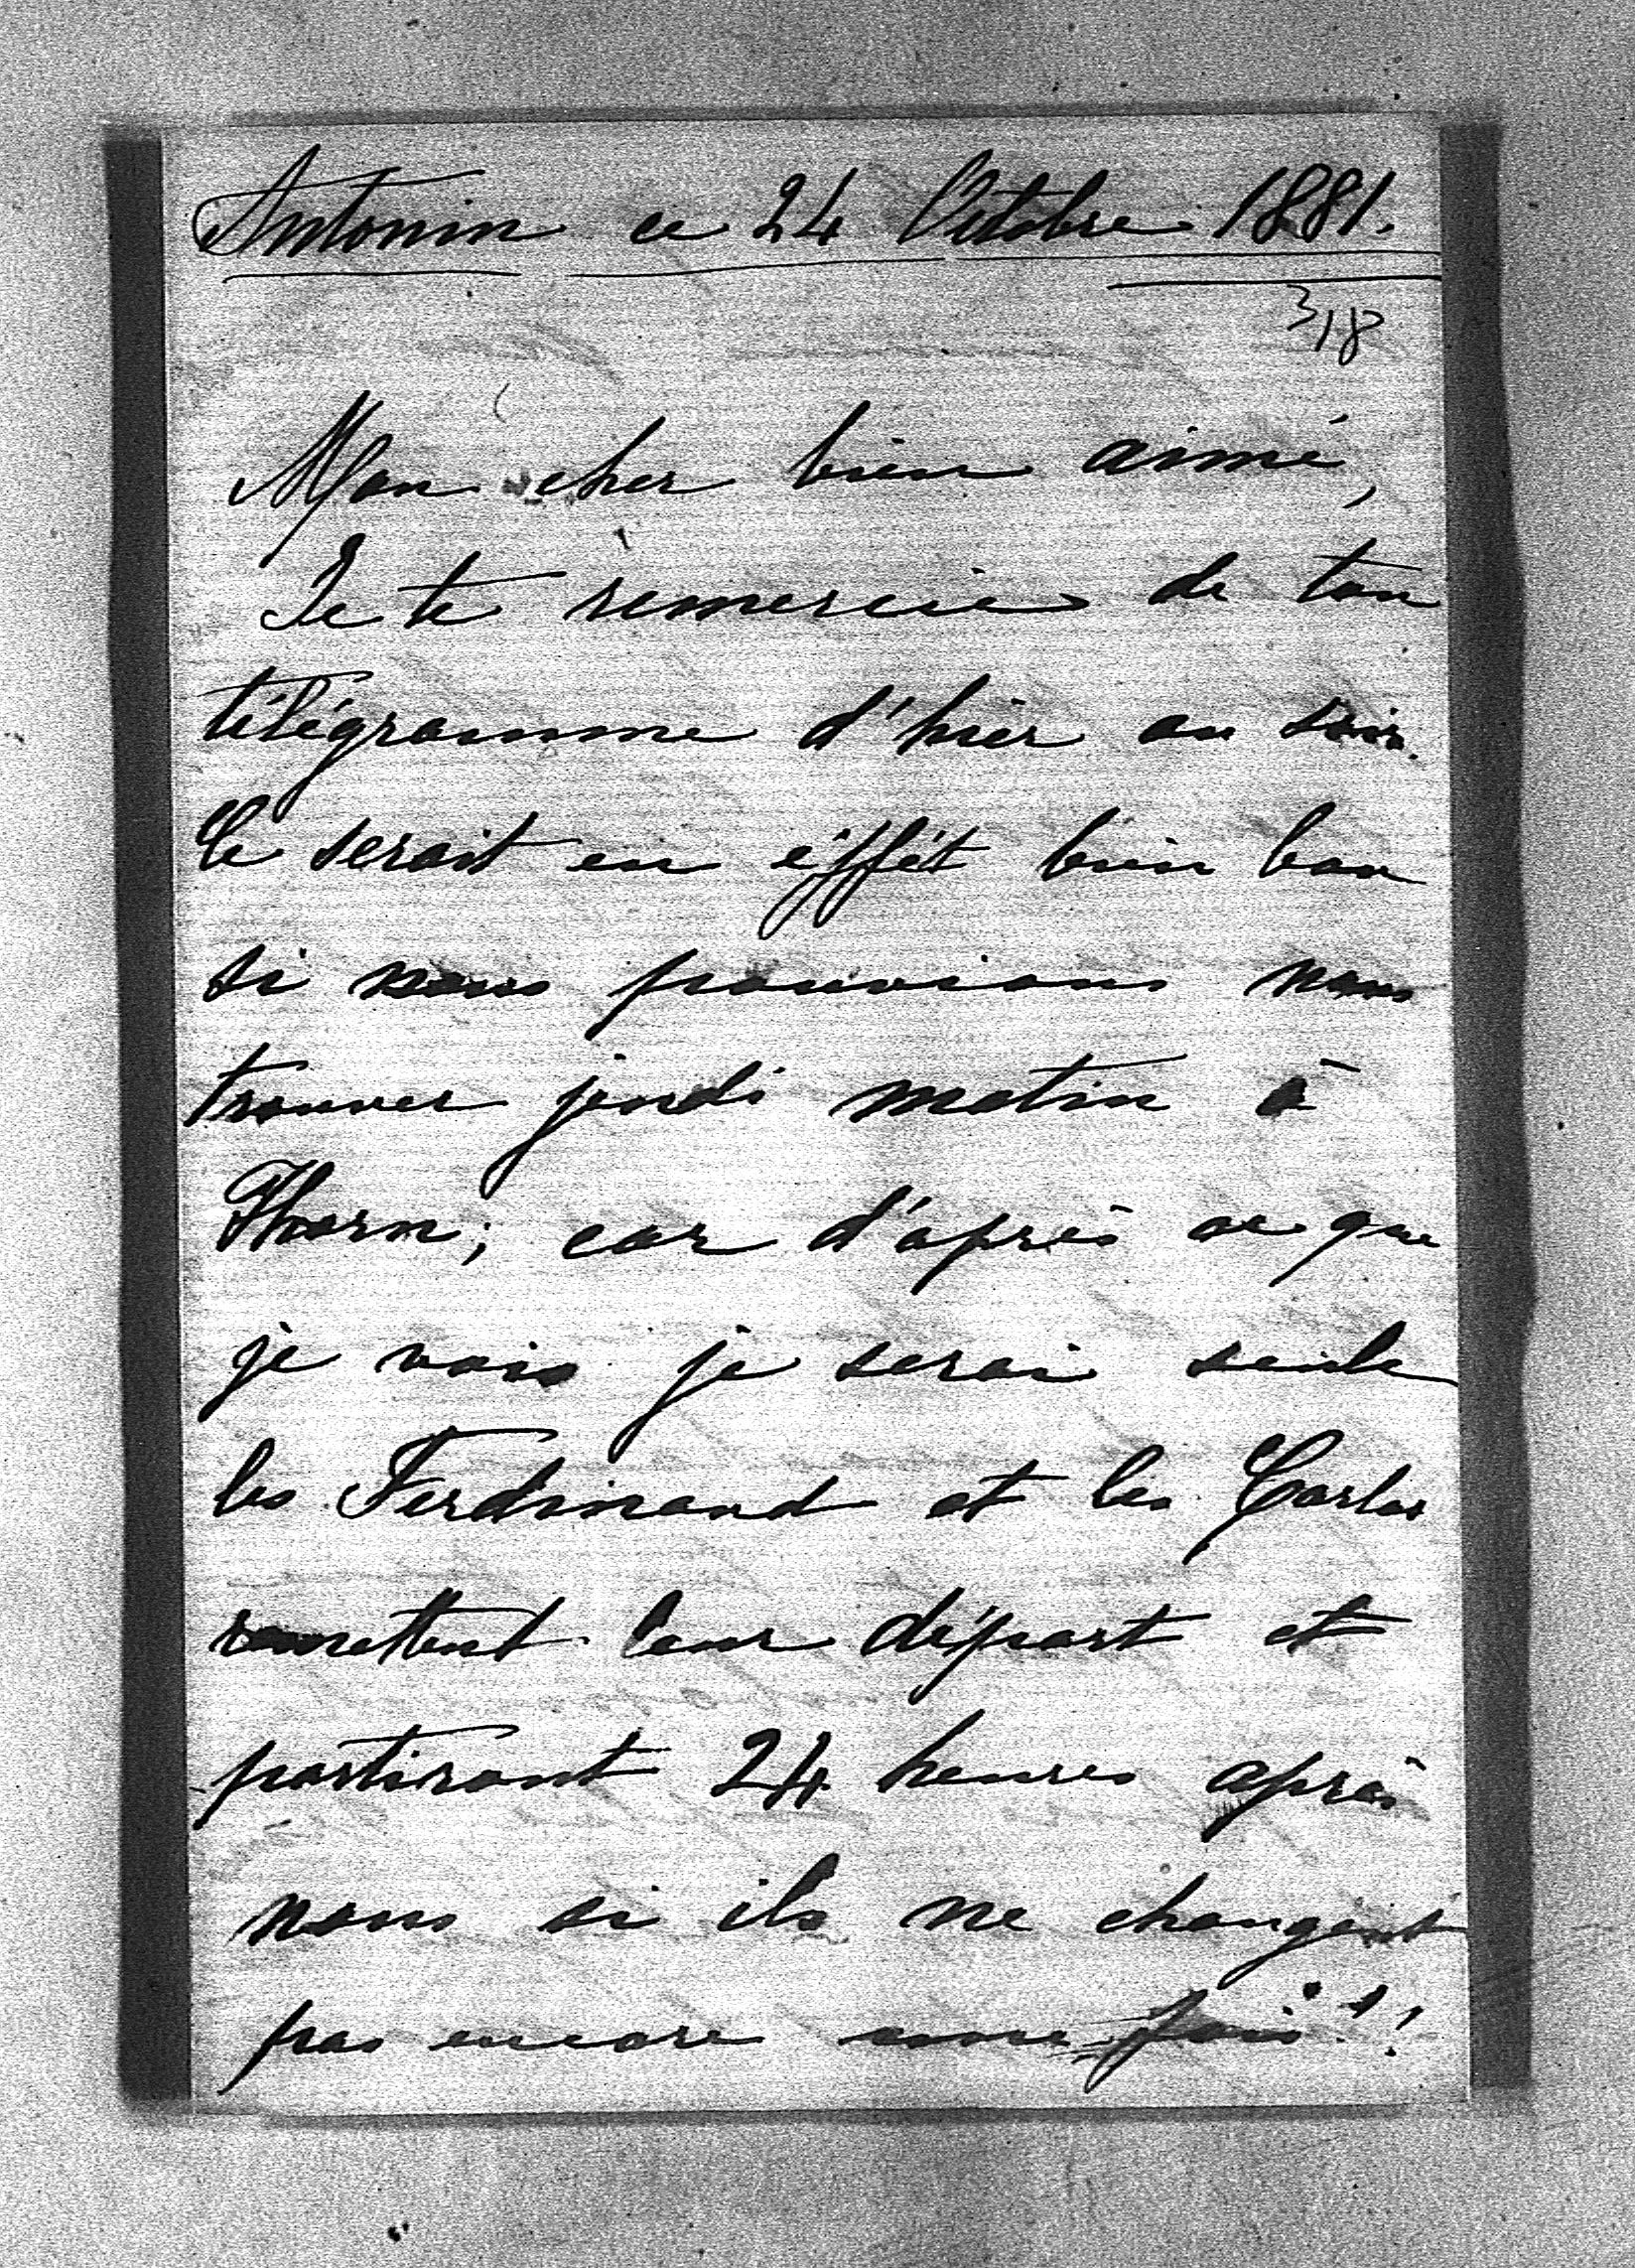 Antonin ce 24 Octobre 1881.
318
Mon cher bien aimé,
Je te remercie de ton
télégramme d'hier au soir.
Ce serait en éffét bien bon
si nous pouvions nous
trouver jeudi matin à
Thorn; car d'après ce que
je vois je serai seule
les Ferdinand et les Carlos
remettent leur départ et
partiront 24 heures après
nous si ils ne changent
pas encore une fois!!!